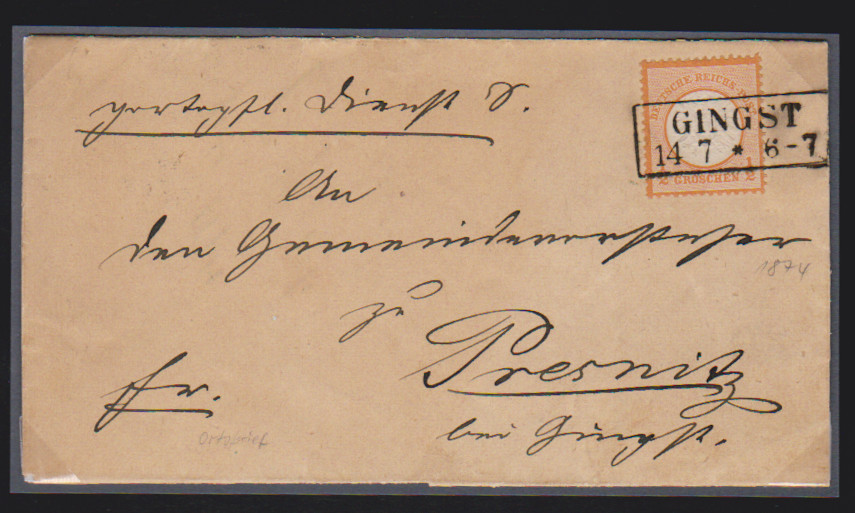 portopfl. Dienst S.
DEUTSCHE REICHS-POST
GINGST
14 7 * 6-7
1/2 GROSCHEN 1/2
An
den Gemeindevorsteher
1874
zu
Presnitz
fr.
bei Gingst.